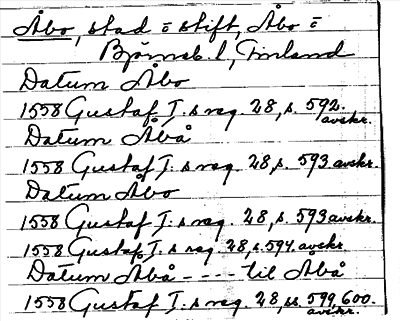 Åbo, stad o stift, Åbo o
Björneb. l, Finland
Datum Åbo
1558 Gustaf I:s reg. 28, s. 592. avskr.
Datum Åbå
1558 Gustaf I:s reg. 28, s. 593 avskr.
Datum Åbo
1558 Gustaf I:s reg. 28, s. 593 avskr.
1558 Gustaf I:s reg. 28, s. 594. avskr.
Datum Åbå - - - - til Åbå
1558 Gustaf I:s reg. 28, ss. 599, 600. avskr.